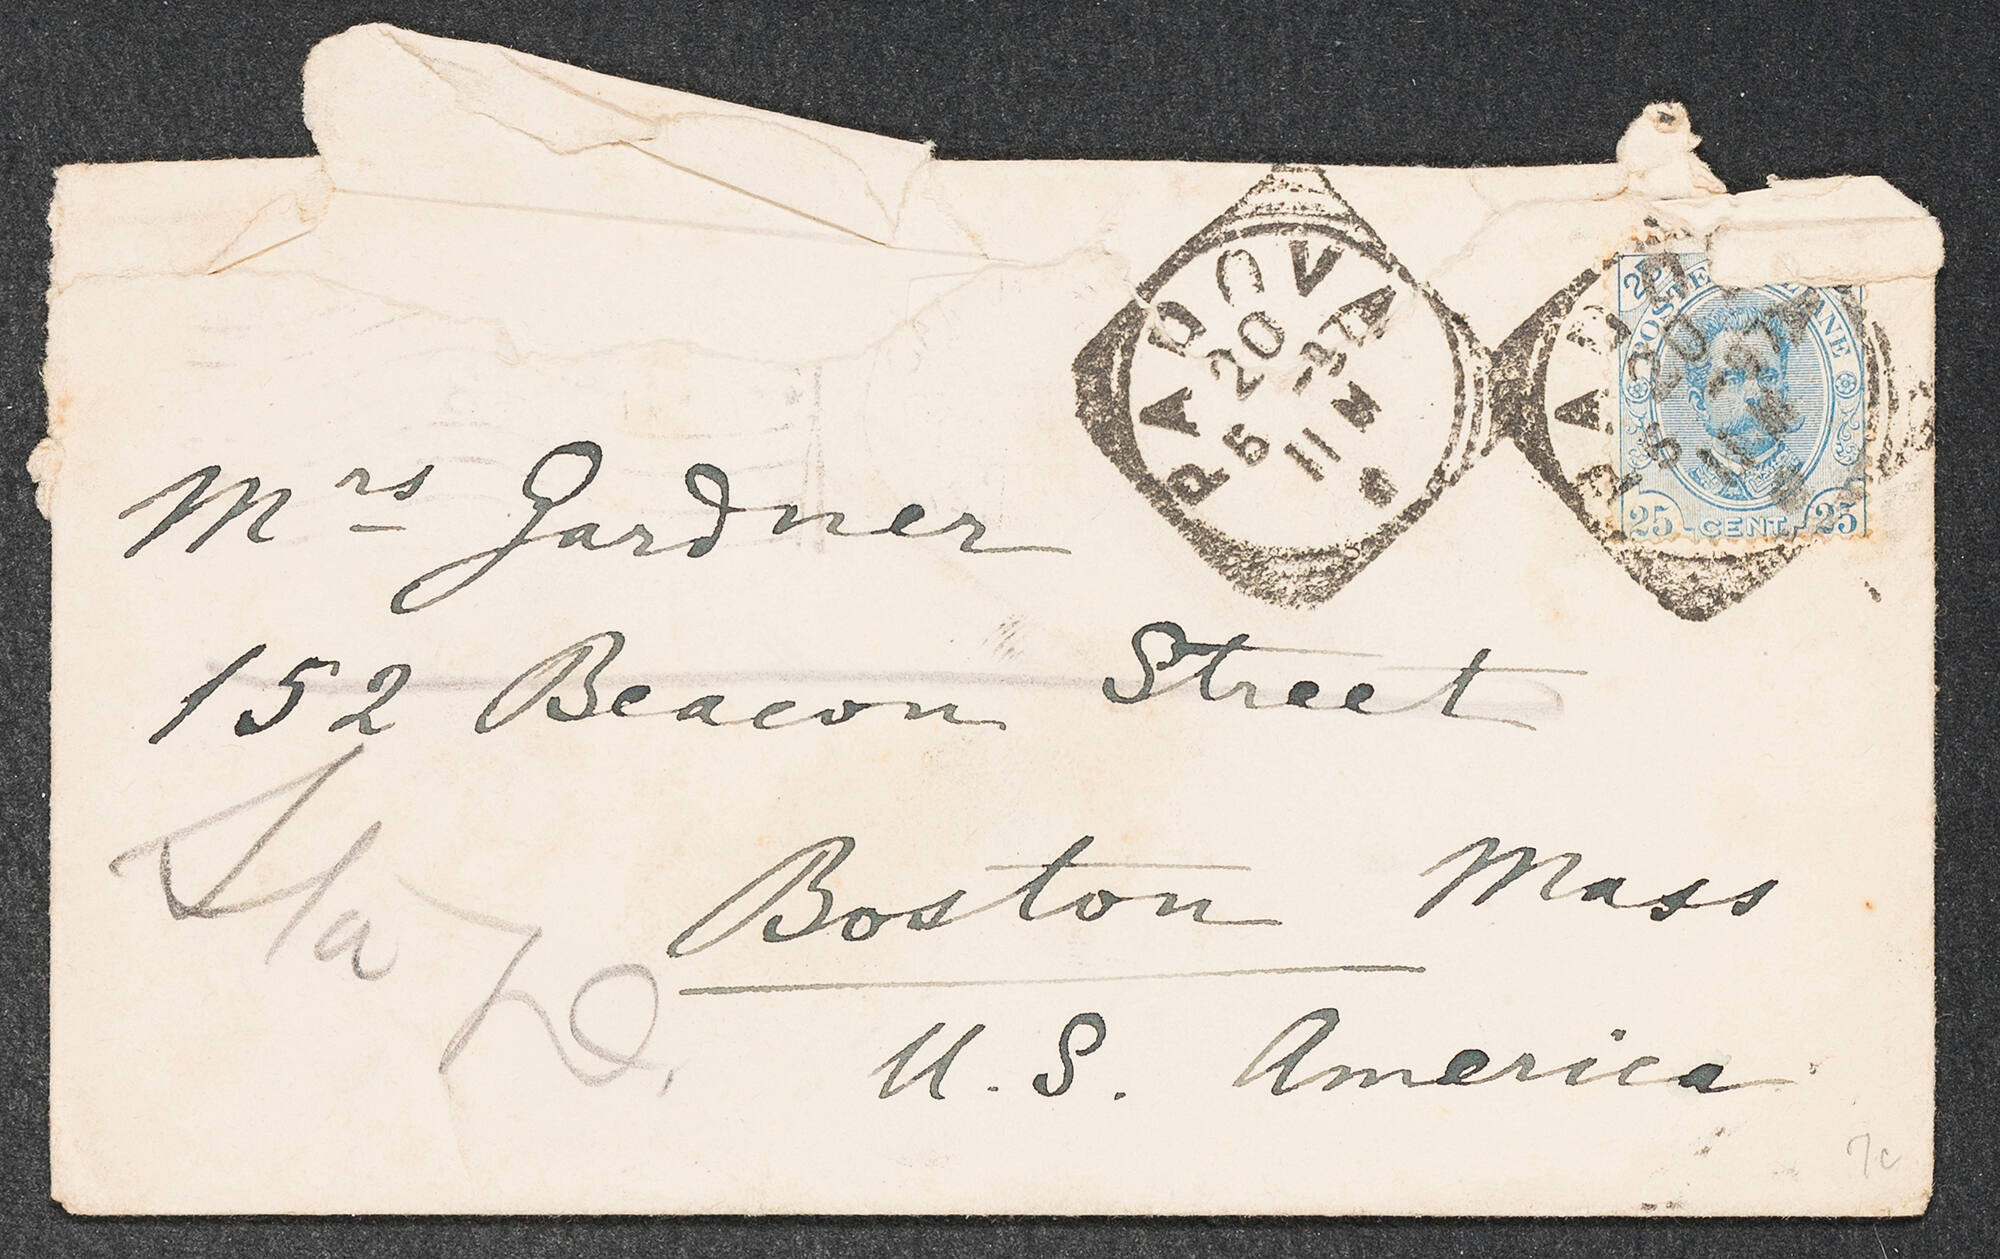 PADOVA
20
5 -97
11 M
25
POSTE ITALIANE
25 CENT. 25
Mrs Gardner
152 Beacon Street
Boston Mass
U. S. America
7c